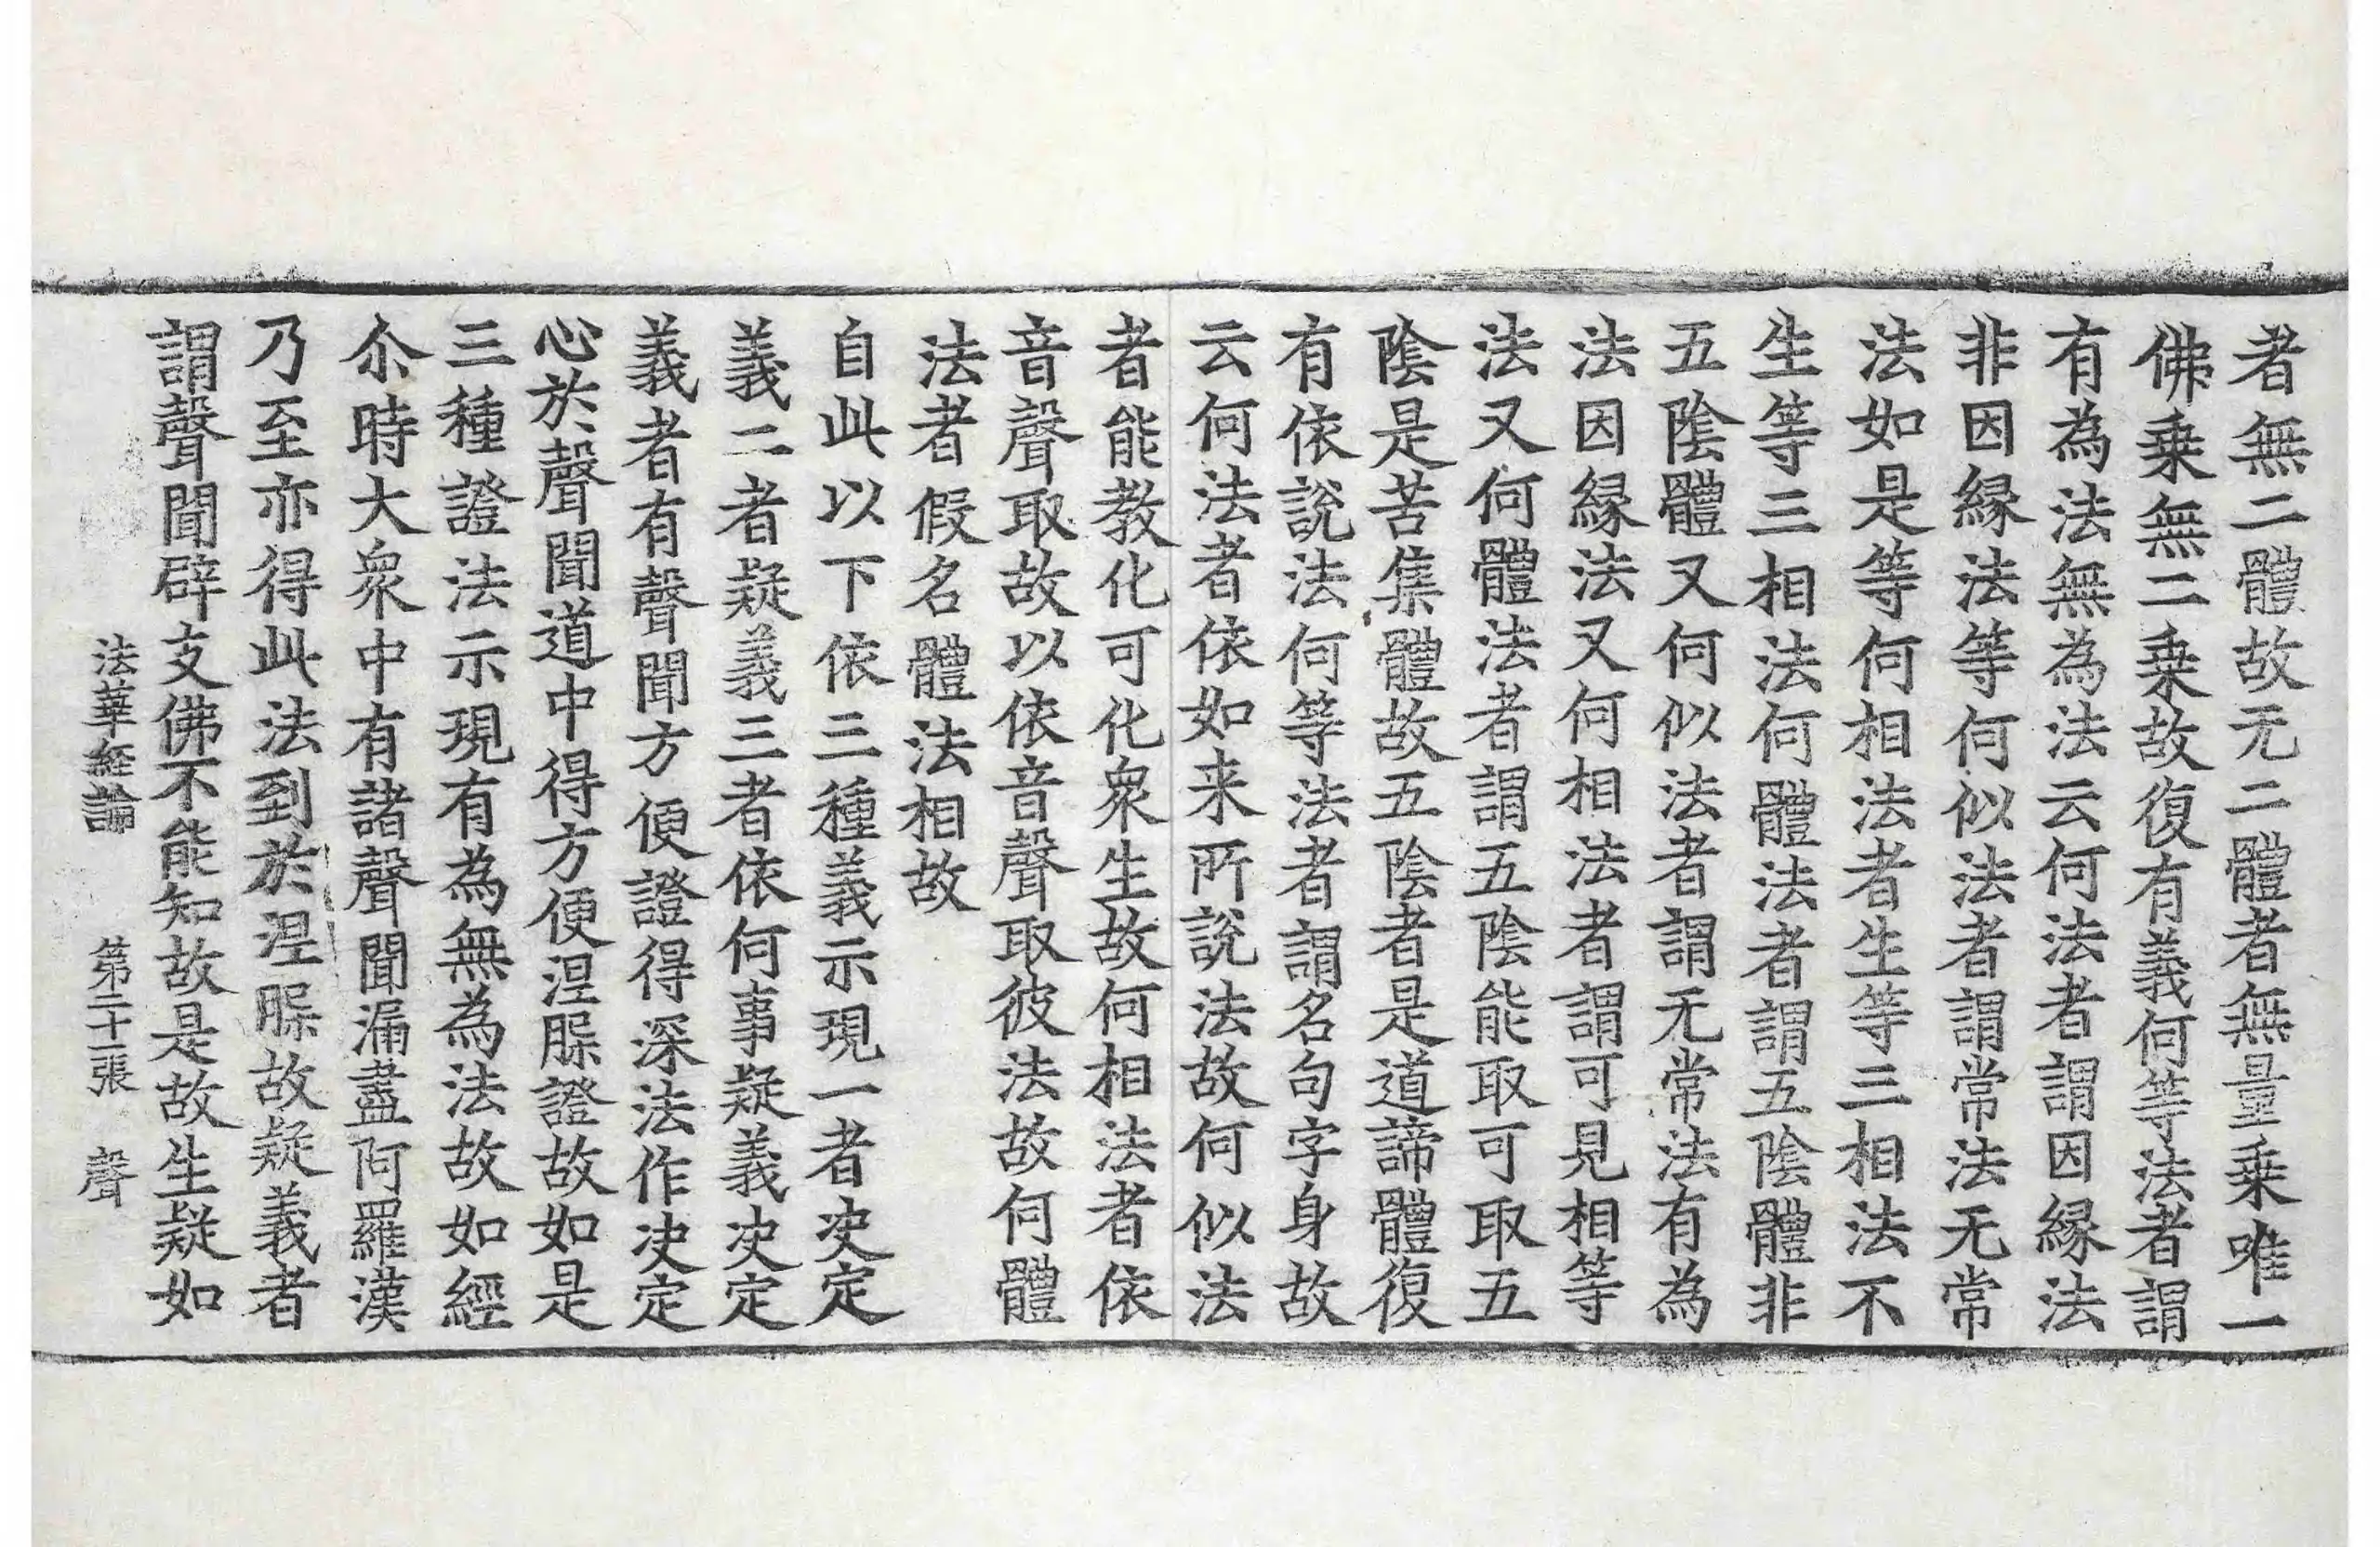 者無二體故无二體者無量乗唯一
佛乗無二乗故復有義何等法者謂
有為法無為法云何法者謂因縁法
非因縁法等何似法者謂常法无常
法如是等何相法者生等三相法不
生等三相法何體法者謂五陰體非
五陰體又何似法者謂无常法有為
法因縁法又何相法者謂可見相等
法又何體法者謂五陰能取可取五
陰是苦集體故五陰者是道諦體復
有依說法何等法者謂名句字身故
云何法者依如来所說法故何似法
者能教化可化衆生故何相法者依
音聲取故以依音聲取彼法故何體
法者假名體法相故
自此以下依三種義示現一者决定
義二者疑義三者依何事疑義决定
義者有聲聞方便證得深法作决定
心於聲聞道中得方便涅槃證故如是
三種證法示現有為無為法故如經
尒時大衆中有諸聲聞漏盡阿羅漢
乃至亦得此法到於涅槃故疑義者
謂聲聞辟支佛不能知故是故生疑如
法華経論　第二十一張　聲